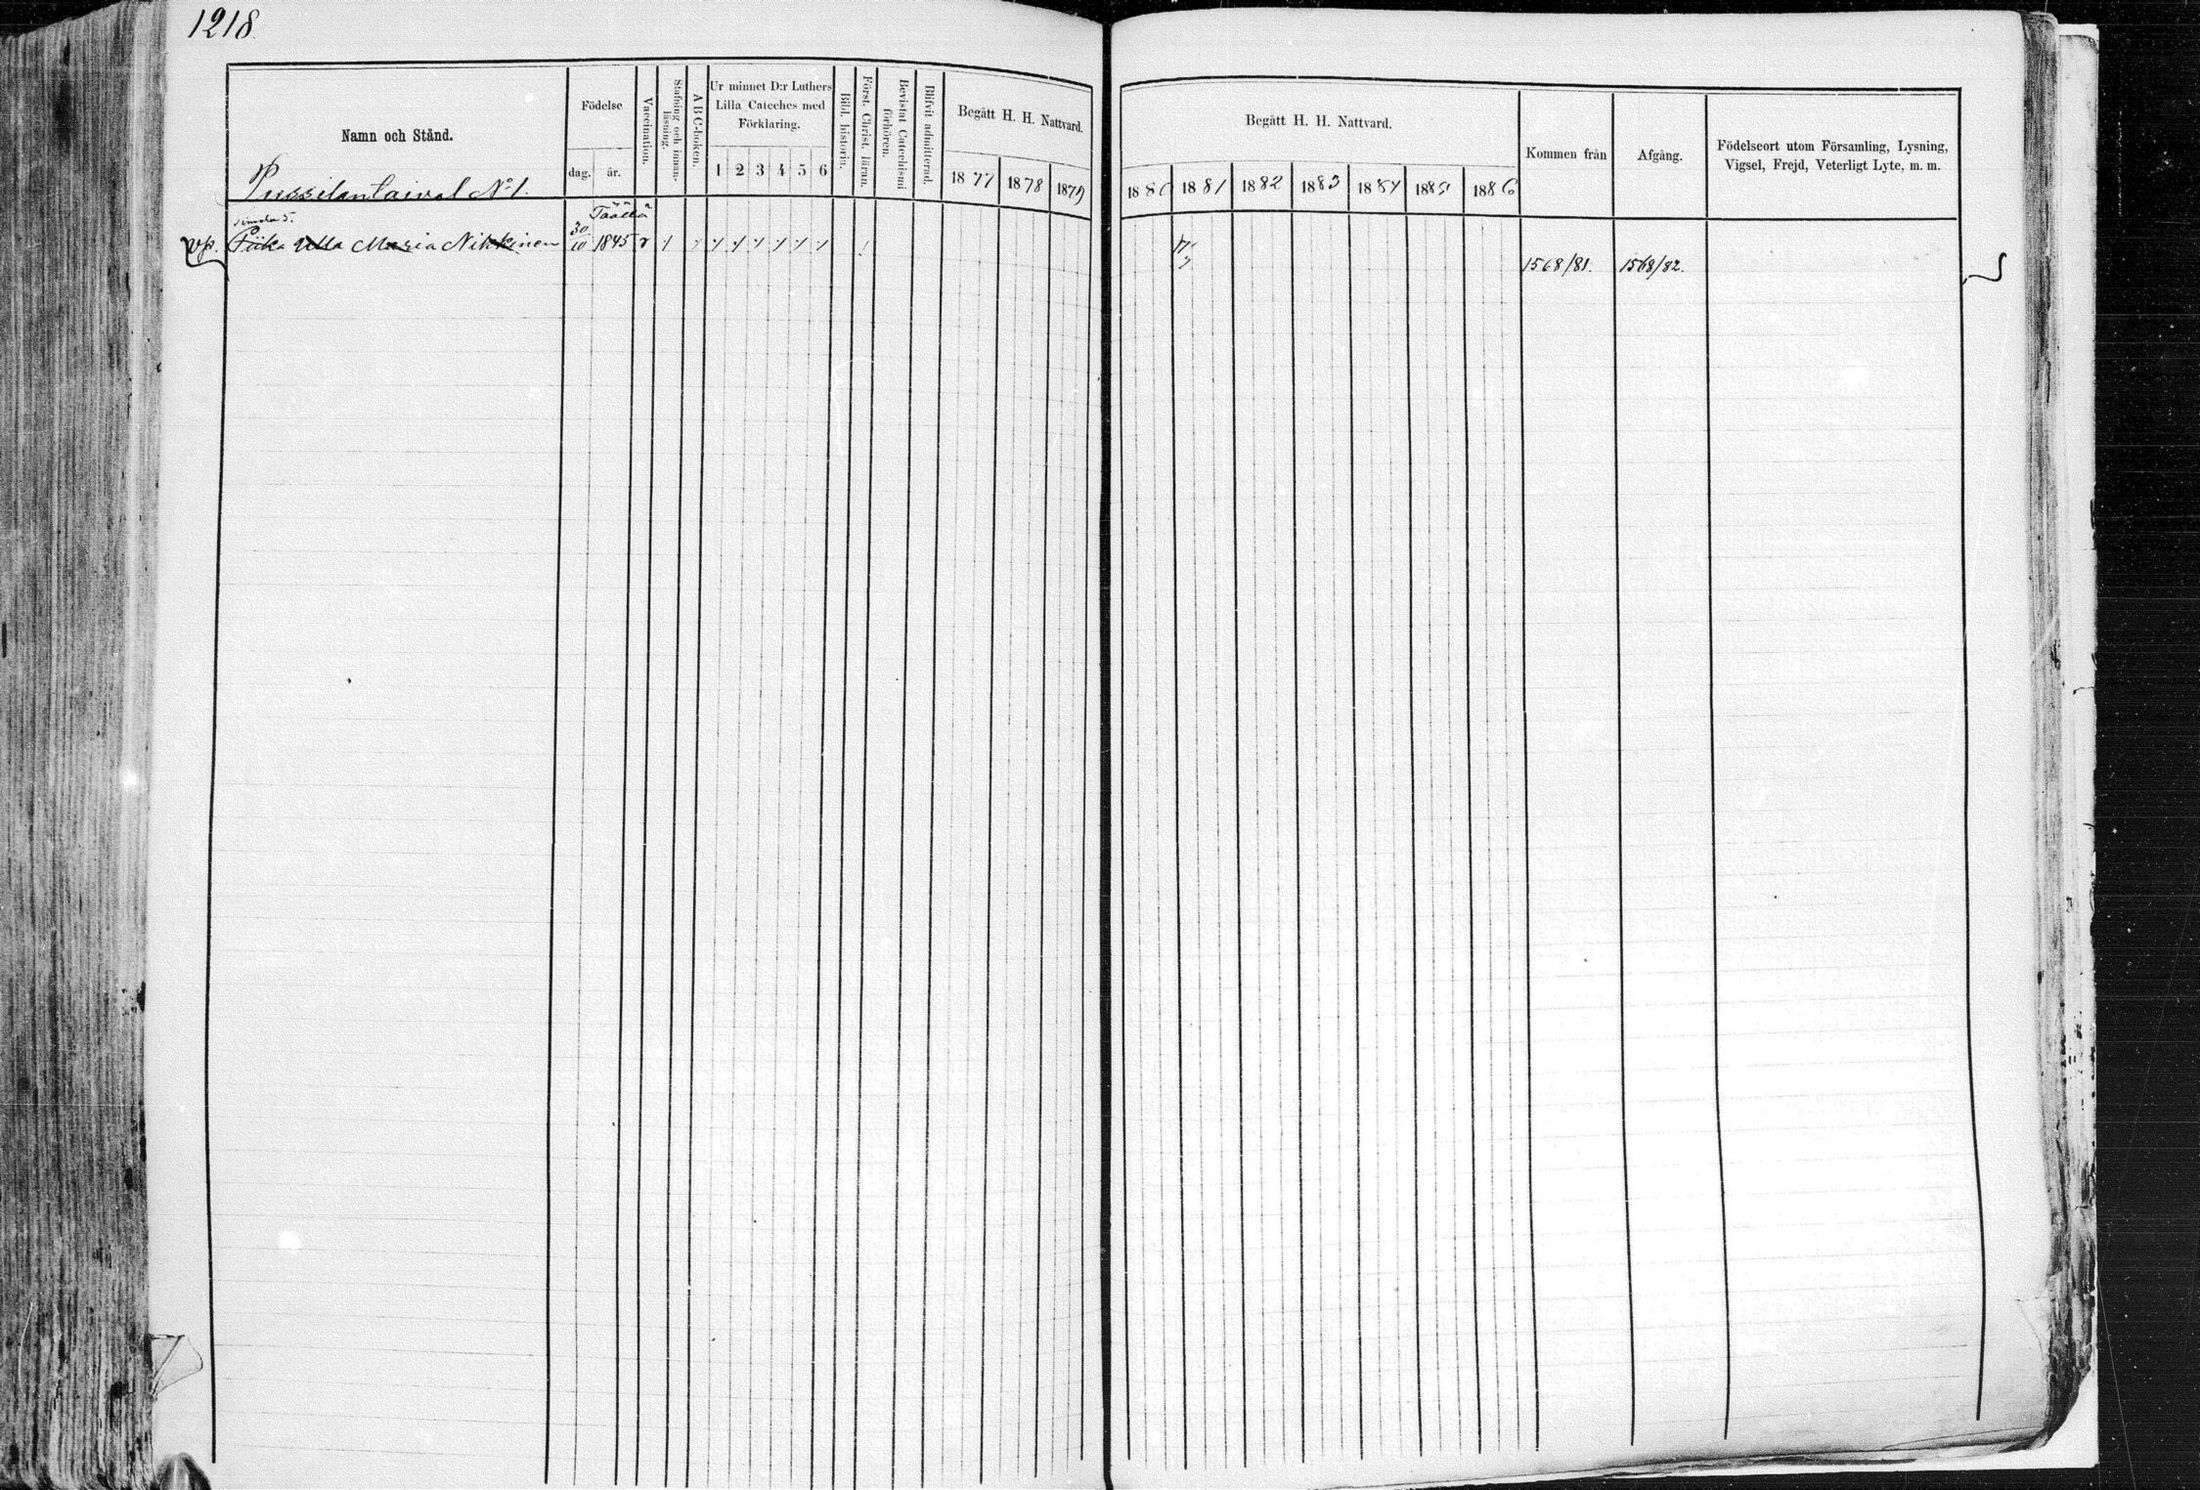 1218.
Namn och Stånd.
Födelse
dag. år.
Vaccination.
Stafning och innan-läsning.
A B C-boken.
Ur minnet D:r Luthers Lilla Cateches med Förklaring.
1 2 3 4 5 6
Bibl. historia.
Först. Christ. läran.
Bevistat Catechismi förhören.
Blifvit admitterad.
Begått H. H. Nattvard.
1877 1878 1879
Begått H. H. Nattvard.
1880 1881 1882 1883 1884 1885 1886
Kommen från
Afgång.
Födelseort utom Församling, Lysning, Vigsel, Frejd, Veterligt Lyte, m. m.
Pussilantaival No 1.
Täällä
Piika Ulla Maria Nikkinen 30/10 1845 v
1568/81. 1568/82.